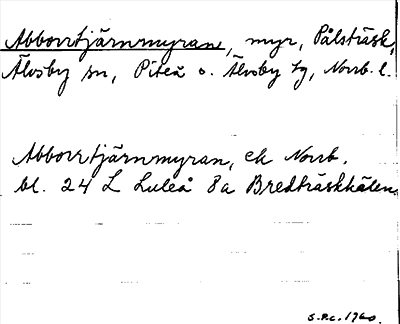 Abborrtjärnmyran, myr, Pålsträsk,
Älvsby sn, Piteå o. Älvsby tg, Norrb. l.
Abborrtjärnmyran, ek Norrb.
bl. 24 L Luleå 8a Bredträskhälen.
S.P.C. 1960.